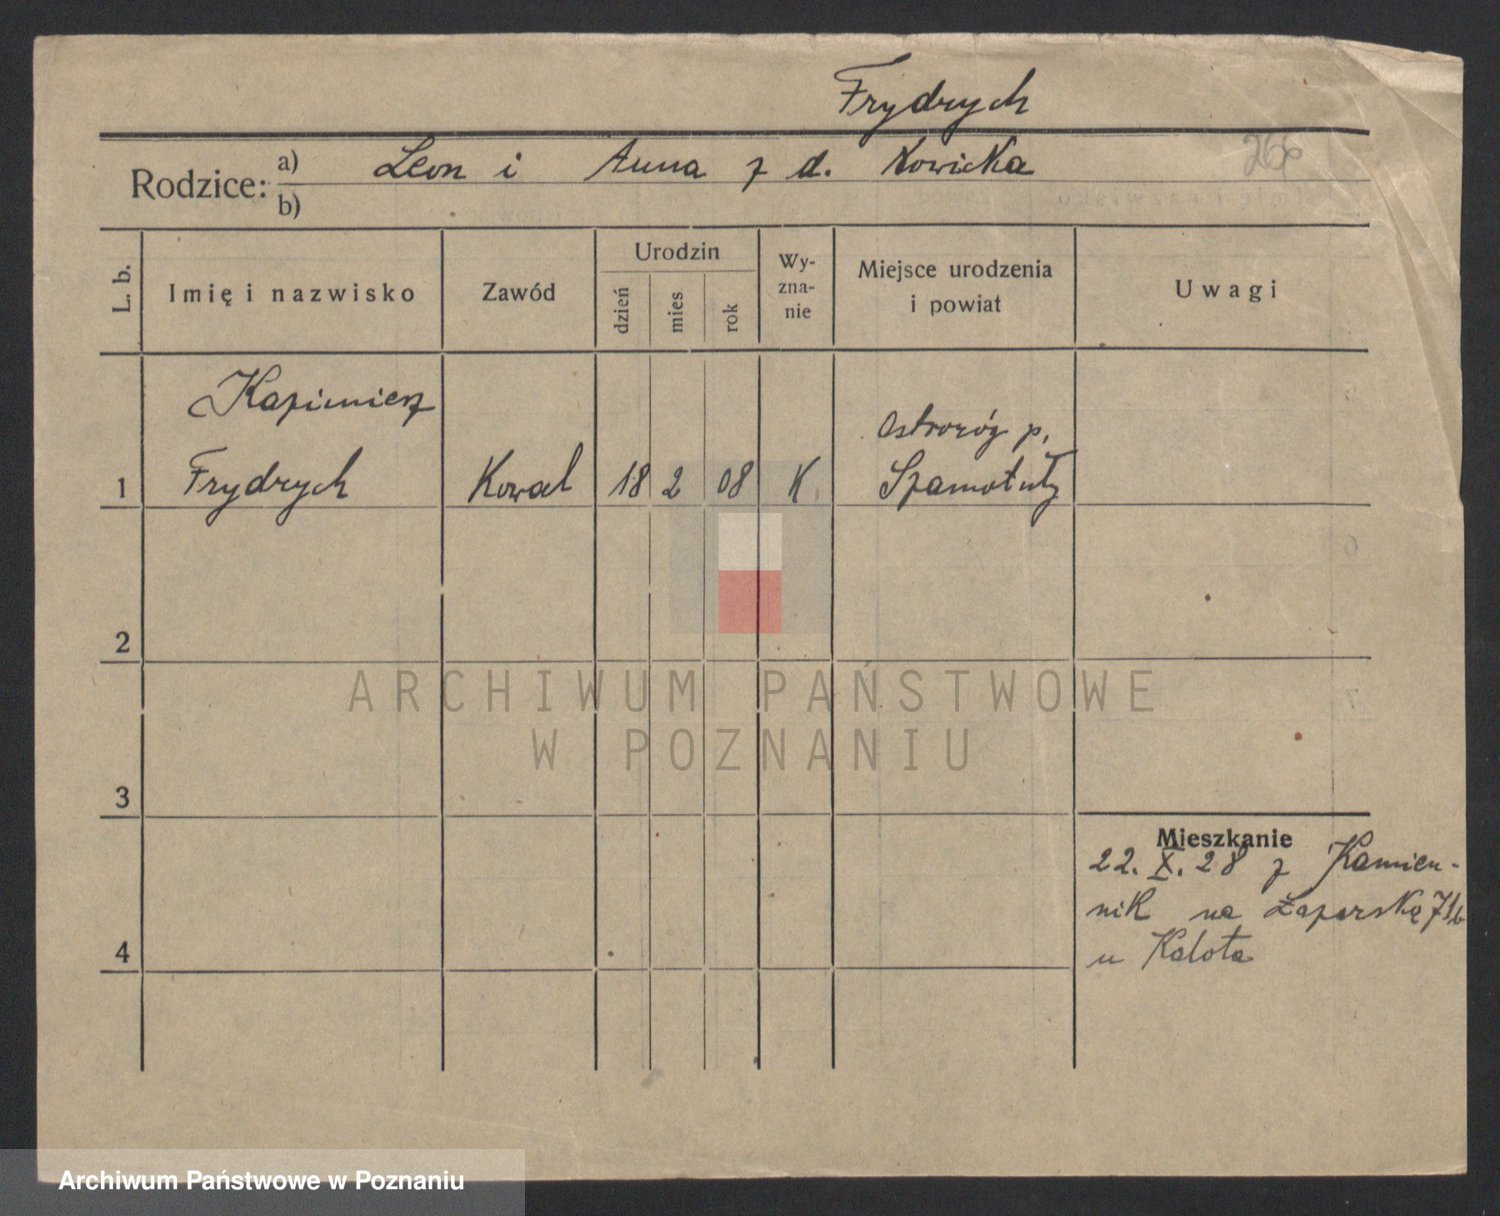 Frydrych
Rodzice: a) Leon i Anna z d. Nowicka 266
b)
L. b. Imię i nazwisko Zawód Urodzin dzień mies rok Wy-zna-nie Miejsce urodzenia i powiat Uwagi
Kazimierz
Ostroróg p.
1 Frydrych Kowal 18 2 08 K. Szamotuły
2
ARCHIWUM PAŃSTWOWE
W POZNANIU
3
Mieszkanie
22. X. 28 z Kamien-
nik na
4 u Kalota
Archiwum Państwowe w Poznaniu